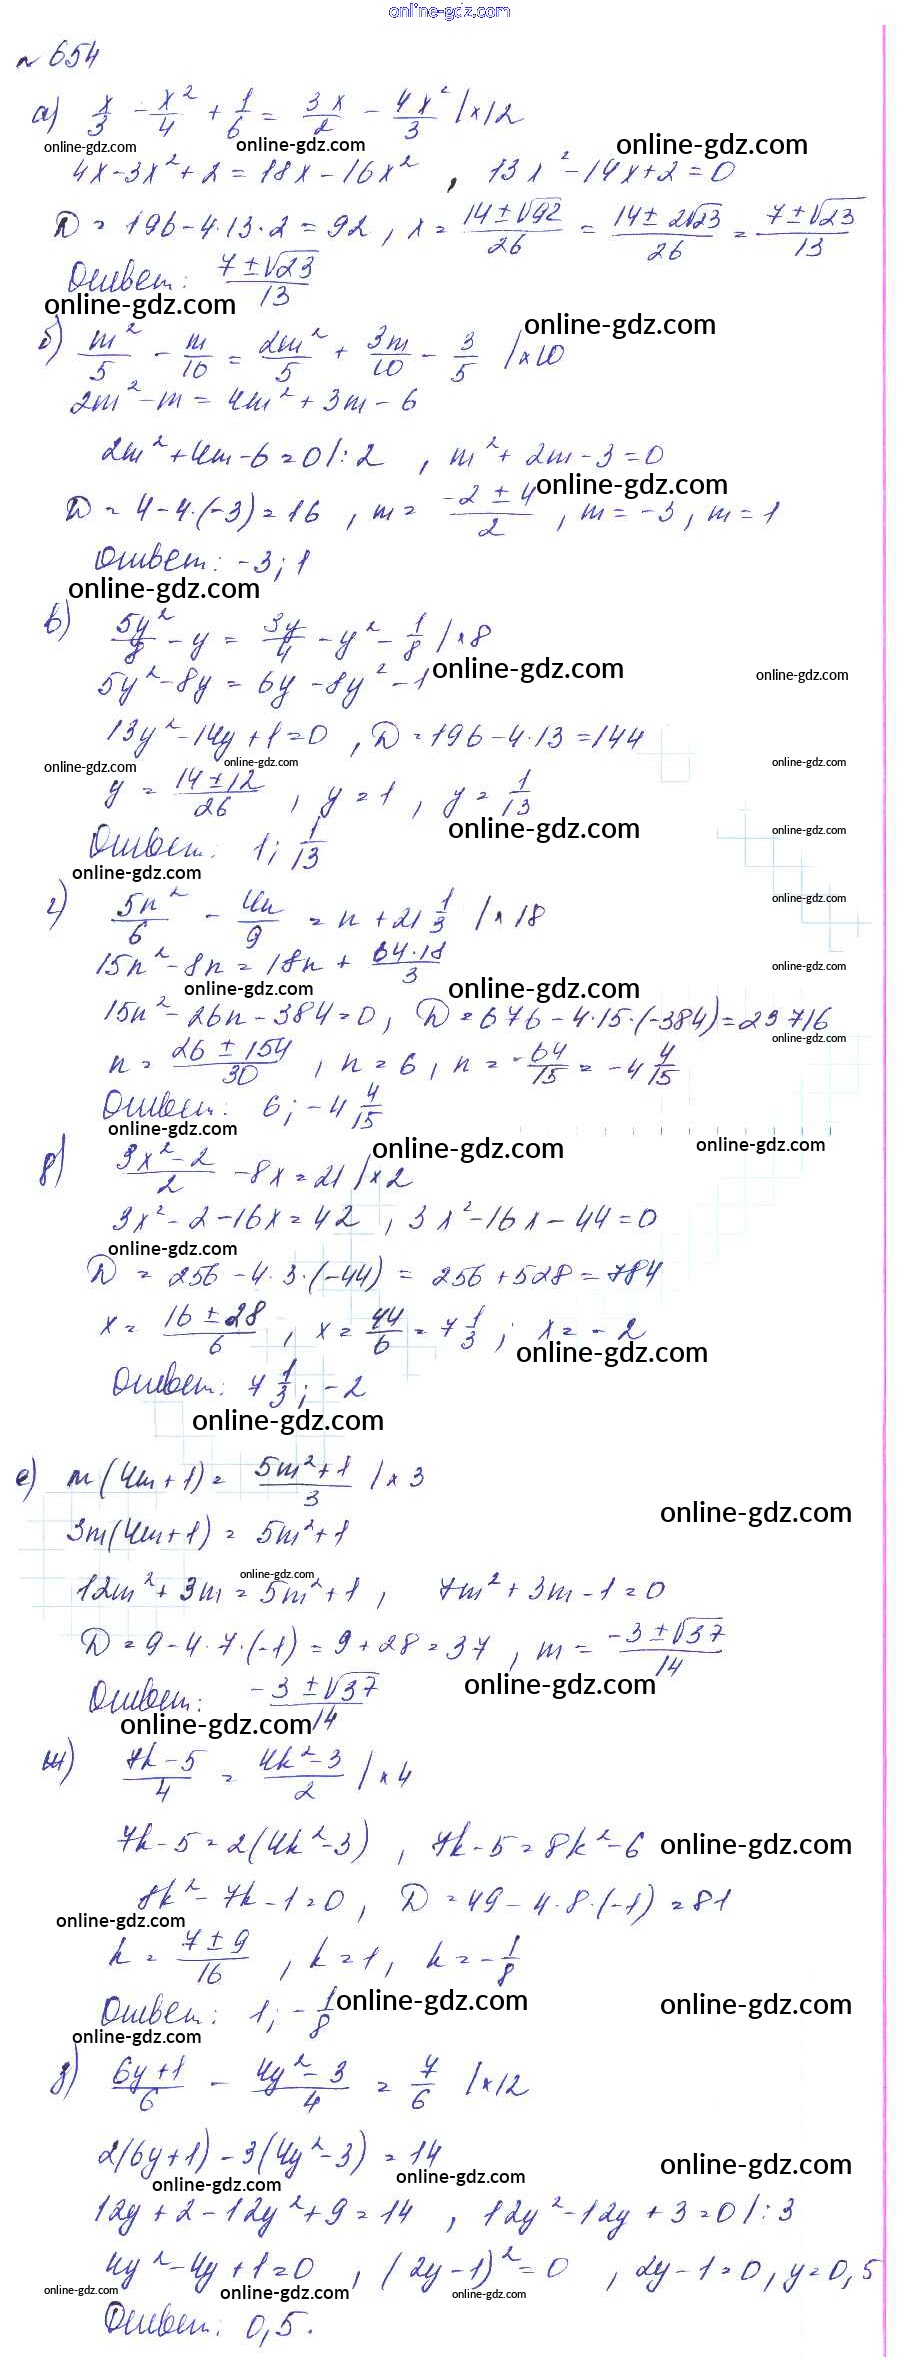 online-gdz.com
№ 654
а) x/3 − x²/4 + 1/6 = 3x/2 − 4x²/3 |×12
online-gdz.com online-gdz.com online-gdz.com
4x−3x²+2=18x−16x² , 13x²−14x+2=0
D = 196−4·13·2=92 , x = (14±√92)/26 = (14±2√23)/26 = (7±√23)/13
Ответ: (7±√23)/13
online-gdz.com online-gdz.com
б) m²/5 − m/10 = 2m²/5 + 3m/10 − 3/5 |×10
2m²−m=4m²+3m−6
2m²+4m−6=0|:2 , m²+2m−3=0
online-gdz.com
D = 4−4·(−3)=16 , m = (−2±4)/2 , m=−3, m=1
Ответ: −3; 1
online-gdz.com
в) 5y²/8 − y = 3y/4 − y² − 1/8 |×8
online-gdz.com online-gdz.com
5y²−8y = 6y−8y²−1
13y²−14y+1=0 , D=196−4·13=144
online-gdz.com online-gdz.com online-gdz.com
y = (14±12)/26 , y=1 , y=1/13
online-gdz.com online-gdz.com
Ответ: 1; 1/13
online-gdz.com online-gdz.com
г) 5n²/6 − 4n/9 = n + 21 1/3 |×18
15n²−8n=18n + 64·18/3
online-gdz.com online-gdz.com online-gdz.com
15n²−26n−384=0, D=676−4·15·(−384)=23716
online-gdz.com
n = (26±154)/30 , n=6, n=−64/15=−4 4/15
Ответ: 6; −4 4/15
online-gdz.com online-gdz.com online-gdz.com
д) (3x²−2)/2 − 8x = 21 |×2
3x²−2−16x=42 , 3x²−16x−44=0
online-gdz.com
D = 256−4·3·(−44) = 256+528=784
x = (16±28)/6 , x=44/6=7 1/3 ; x=−2
online-gdz.com
Ответ: 7 1/3; −2
online-gdz.com
е) m(4m+1) = (5m²+1)/3 |×3
online-gdz.com
3m(4m+1) = 5m²+1
online-gdz.com
12m²+3m=5m²+1 , 7m²+3m−1=0
D=9−4·7·(−1)=9+28=37 , m=(−3±√37)/14
online-gdz.com
Ответ: (−3±√37)/14
online-gdz.com
ж) (7k−5)/4 = (4k²−3)/2 |×4
7k−5=2(4k²−3) , 7k−5=8k²−6
online-gdz.com
8k²−7k−1=0 , D=49−4·8·(−1)=81
online-gdz.com
k = (7±9)/16 , k=1, k=−1/8
online-gdz.com online-gdz.com
Ответ: 1; −1/8
online-gdz.com
з) (6y+1)/6 − (4y²−3)/4 = 7/6 |×12
2(6y+1)−3(4y²−3)=14
online-gdz.com online-gdz.com online-gdz.com
12y+2−12y²+9=14 , 12y²−12y+3=0|:3
4y²−4y+1=0 , (2y−1)²=0 , 2y−1=0, y=0,5
online-gdz.com online-gdz.com online-gdz.com
Ответ: 0,5.